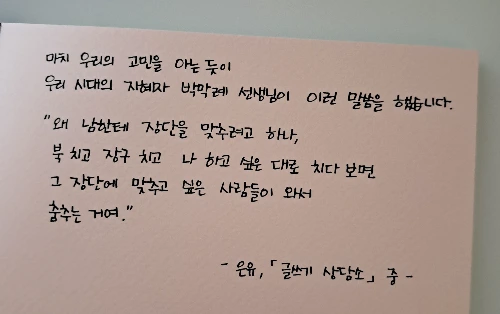 마치 우리의 고민을 아는 듯이
우리 시대의 지혜자 박막례 선생님이 이런 말씀을 했습니다.
"왜 남한테 장단을 맞추려고 하나,
북 치고 장구 치고 나 하고 싶은 대로 치다 보면
그 장단에 맞추고 싶은 사람들이 와서
춤추는 거여."
- 은유, 「글쓰기 상담소」 중 -